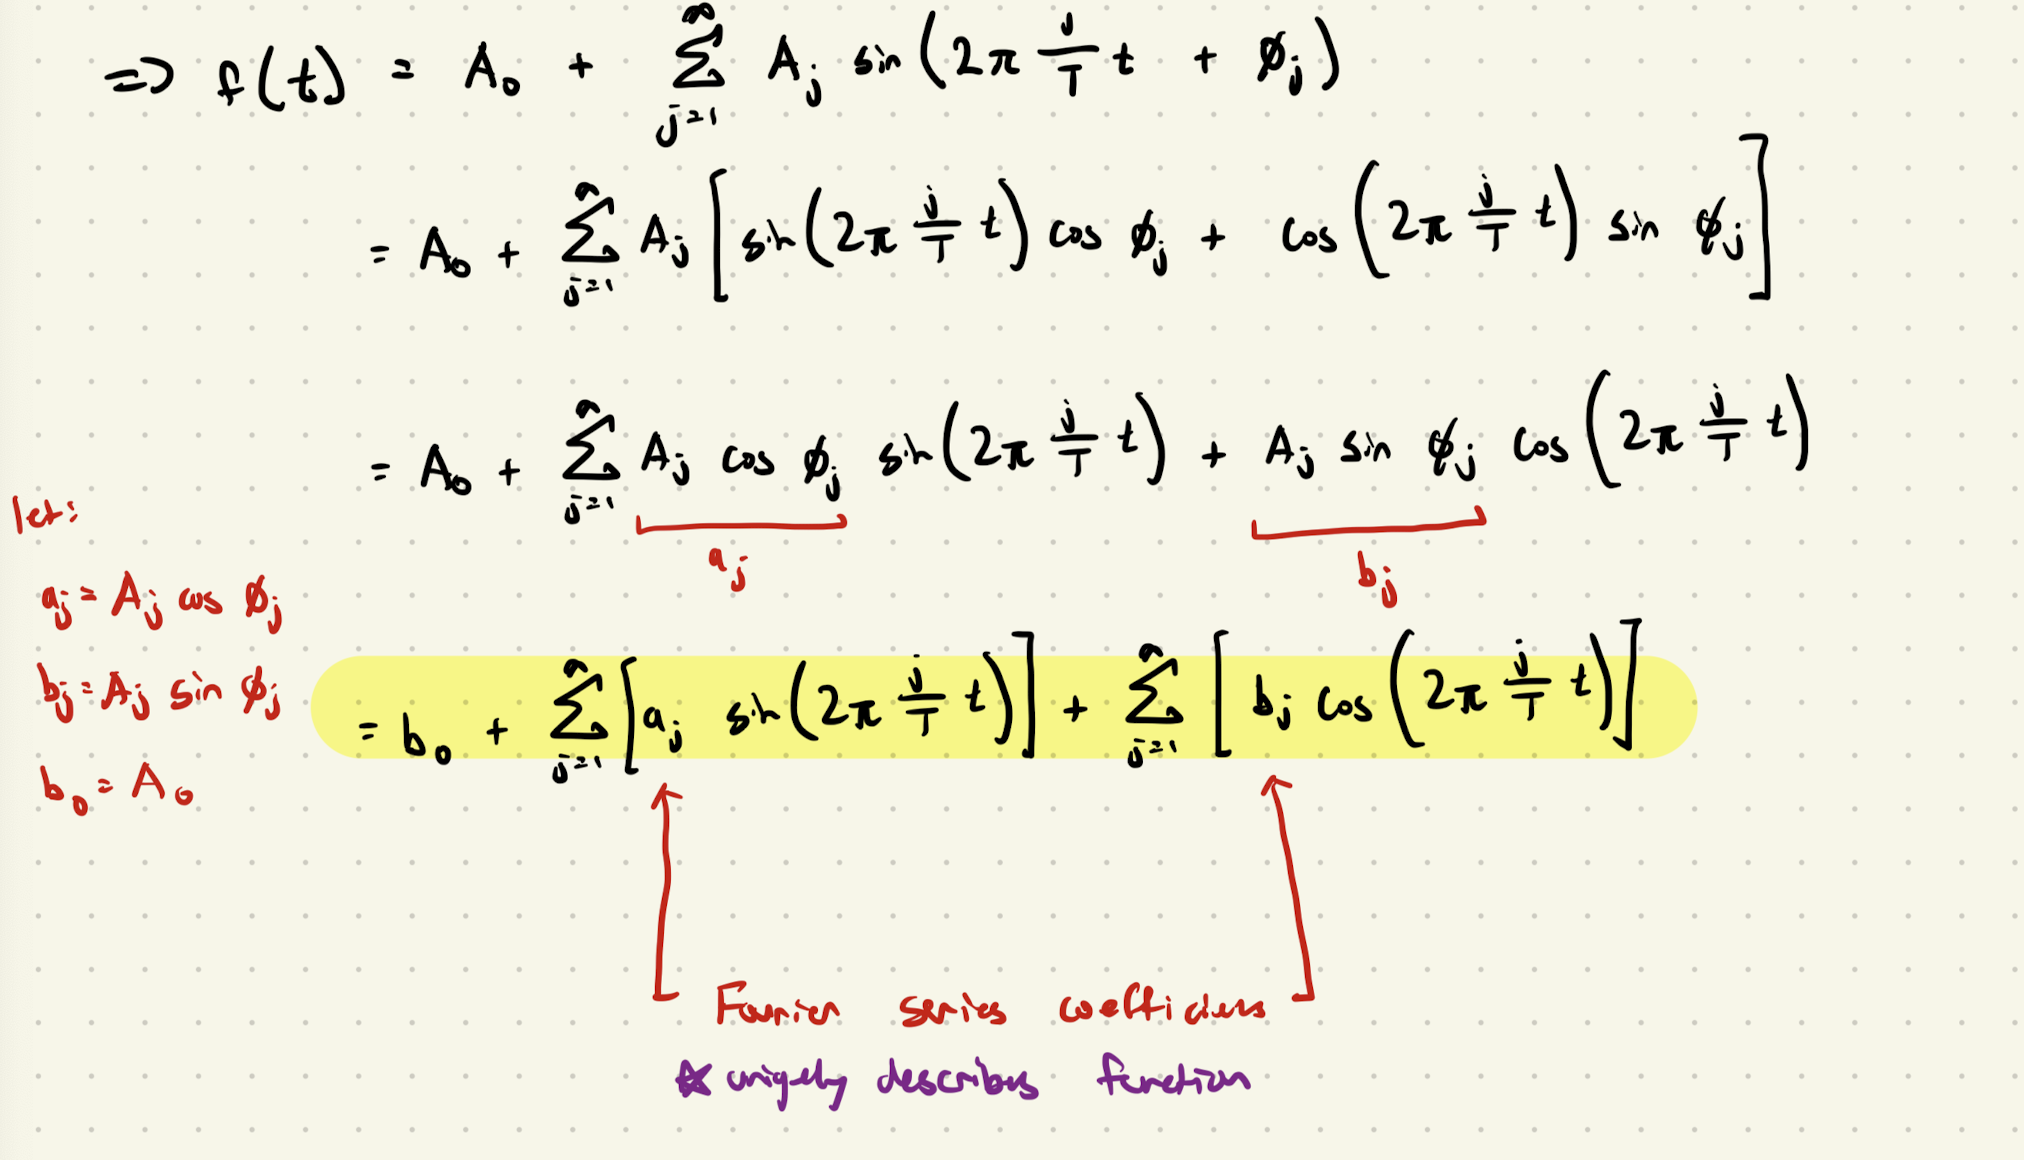 => f(t) = A₀ + ∑_{j=1}^{∞} A_j sin(2π j/T t + ϕ_j)
= A₀ + ∑_{j=1}^{∞} A_j [sin(2π j/T t) cos ϕ_j + cos(2π j/T t) sin ϕ_j]
= A₀ + ∑_{j=1}^{∞} A_j cos ϕ_j sin(2π j/T t) + A_j sin ϕ_j cos(2π j/T t)
a_j b_j
let:
a_j = A_j cos ϕ_j
b_j = A_j sin ϕ_j
b₀ = A₀
= b₀ + ∑_{j=1}^{∞} [a_j sin(2π j/T t)] + ∑_{j=1}^{∞} [b_j cos(2π j/T t)]
Fourier series coefficients
☆ uniquely describes function